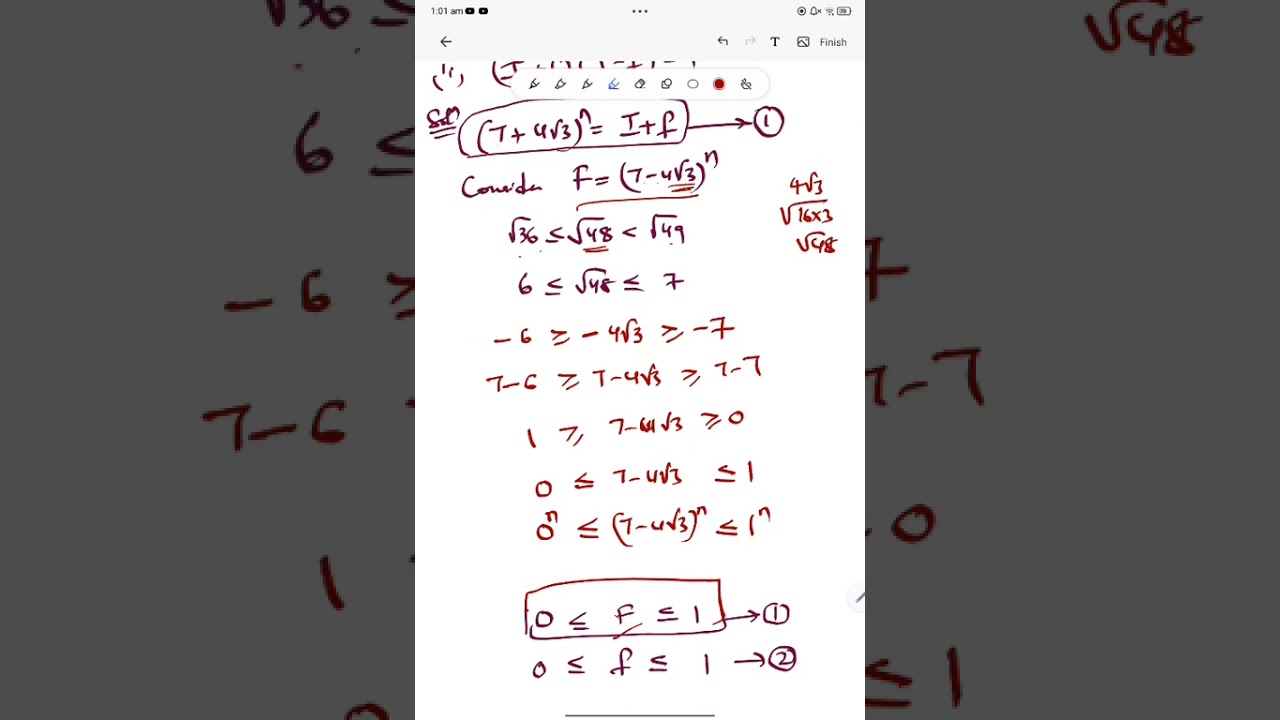 1:01 am
Finish
(ii)
Solⁿ (7+4√3)ⁿ = I+f → ①
Consider F = (7-4√3)ⁿ
4√3
√16×3
√48
√36 ≤ √48 < √49
6 ≤ √48 ≤ 7
-6 ≥ -4√3 ≥ -7
7-6 ≥ 7-4√3 ≥ 7-7
1 ≥ 7-4√3 ≥ 0
0 ≤ 7-4√3 ≤ 1
0ⁿ ≤ (7-4√3)ⁿ ≤ 1ⁿ
0 ≤ F ≤ 1 → ①
0 ≤ f ≤ 1 → ②